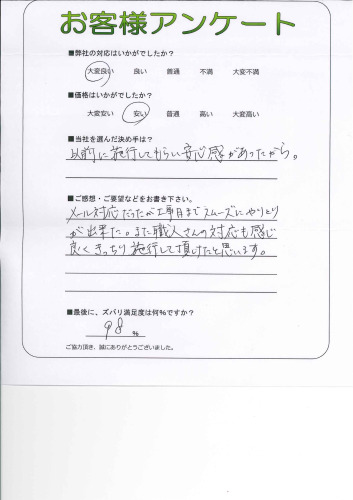 お客様アンケート
■弊社の対応はいかがでしたか?
大変良い 良い 普通 不満 大変不満
■価格はいかがでしたか?
大変安い 安い 普通 高い 大変高い
■当社を選んだ決め手は?
以前に施行してもらい安心感があったから。
■ご感想・ご要望などをお書き下さい。
メール対応だったが工事日までスムーズにやりとり
が出来た。また職人さんの対応も感じ
良くきっちり施行して頂けたと思います。
■最後に、ズバリ満足度は何%ですか?
98 %
ご協力頂き、誠にありがとうございました。